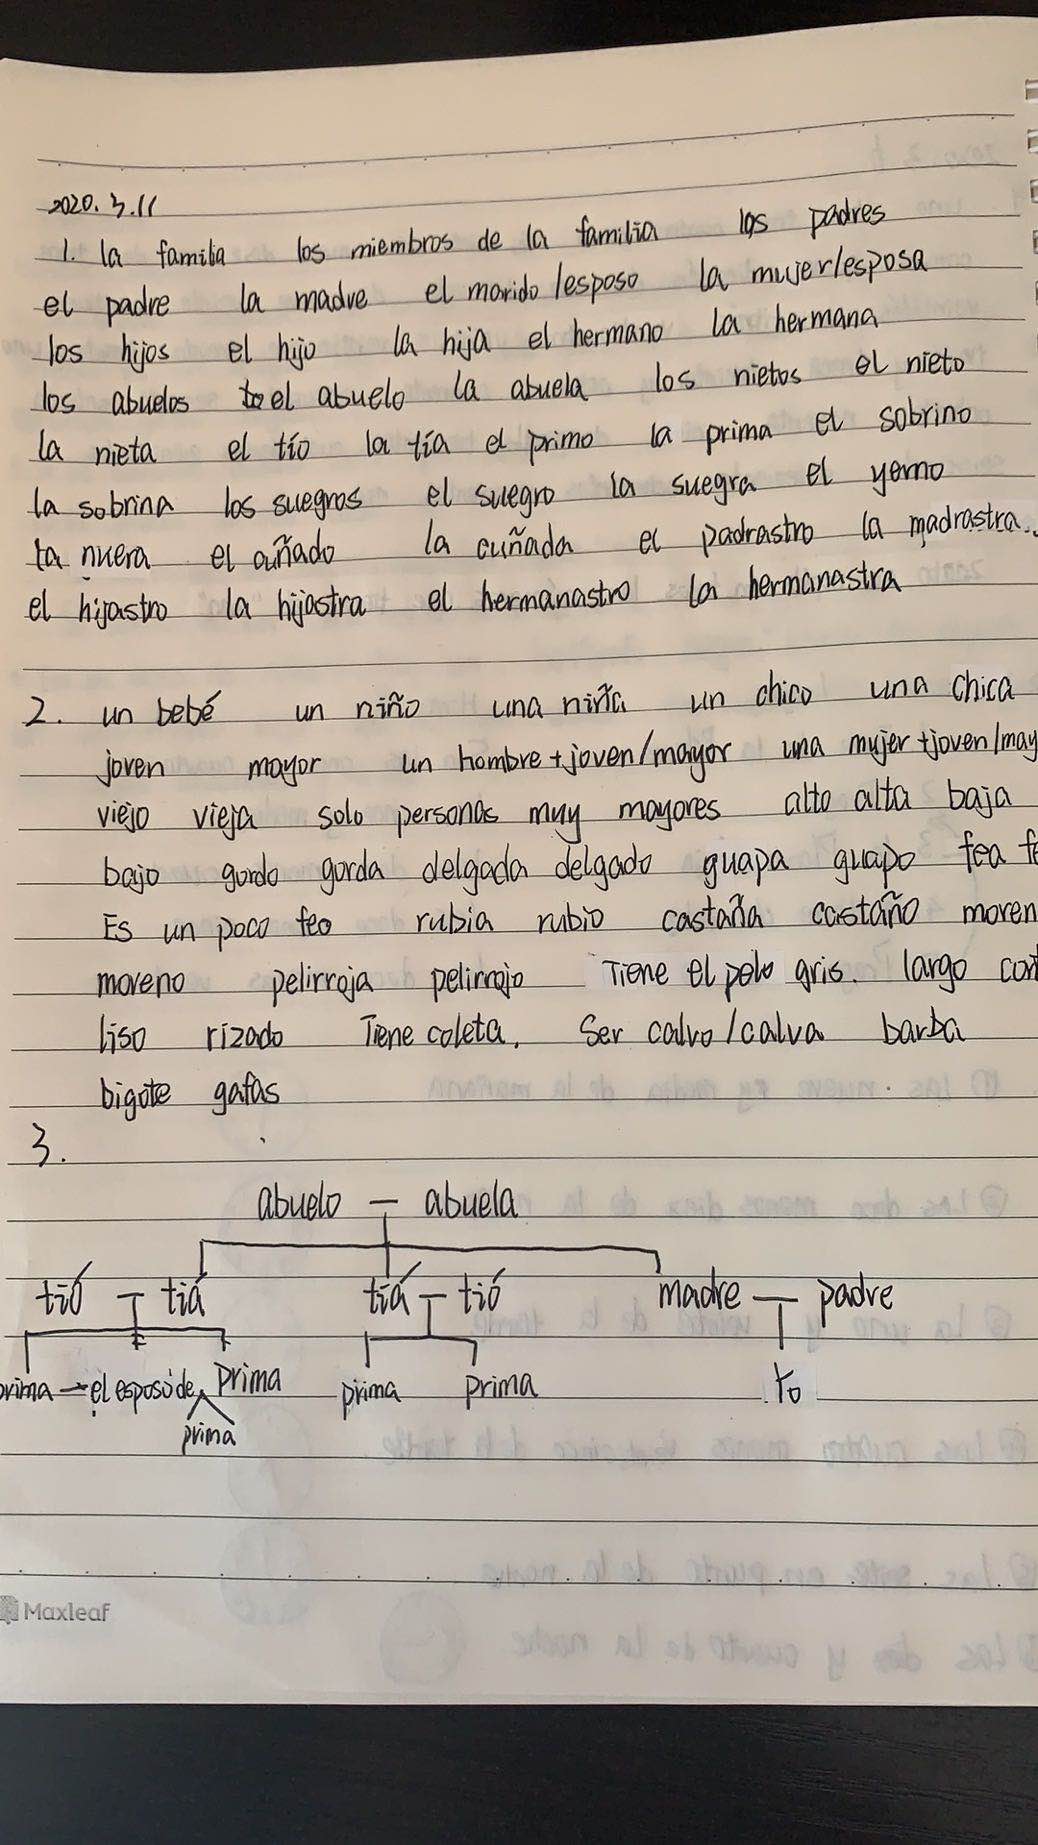 2020.3.11
1. la familia los miembros de la familia los padres
el padre la madre el marido/esposo la mujer/esposa
los hijos el hijo la hija el hermano la hermana
los abuelos el abuelo la abuela los nietos el nieto
la nieta el tío la tía el primo la prima el sobrino
la sobrina los suegros el suegro la suegra el yerno
la nuera el cuñado la cuñada el padrastro la madrastra.
el hijastro la hijastra el hermanastro la hermanastra
2. un bebé un niño una niña un chico una chica
joven mayor un hombre+joven/mayor una mujer+joven/may
viejo vieja solo personas muy mayores alto alta baja
bajo gordo gorda delgada delgado guapa guapo fea f
Es un poco feo rubia rubio castaña castaño moren
moreno pelirroja pelirrojo Tiene el pelo gris. largo cor
liso rizado Tiene coleta. Ser calvo/calva barba
bigote gafas
3.
abuelo — abuela
tió tiá tiá tió madre padre
rima — el esposo de prima prima prima Yo
prima
Maxleaf